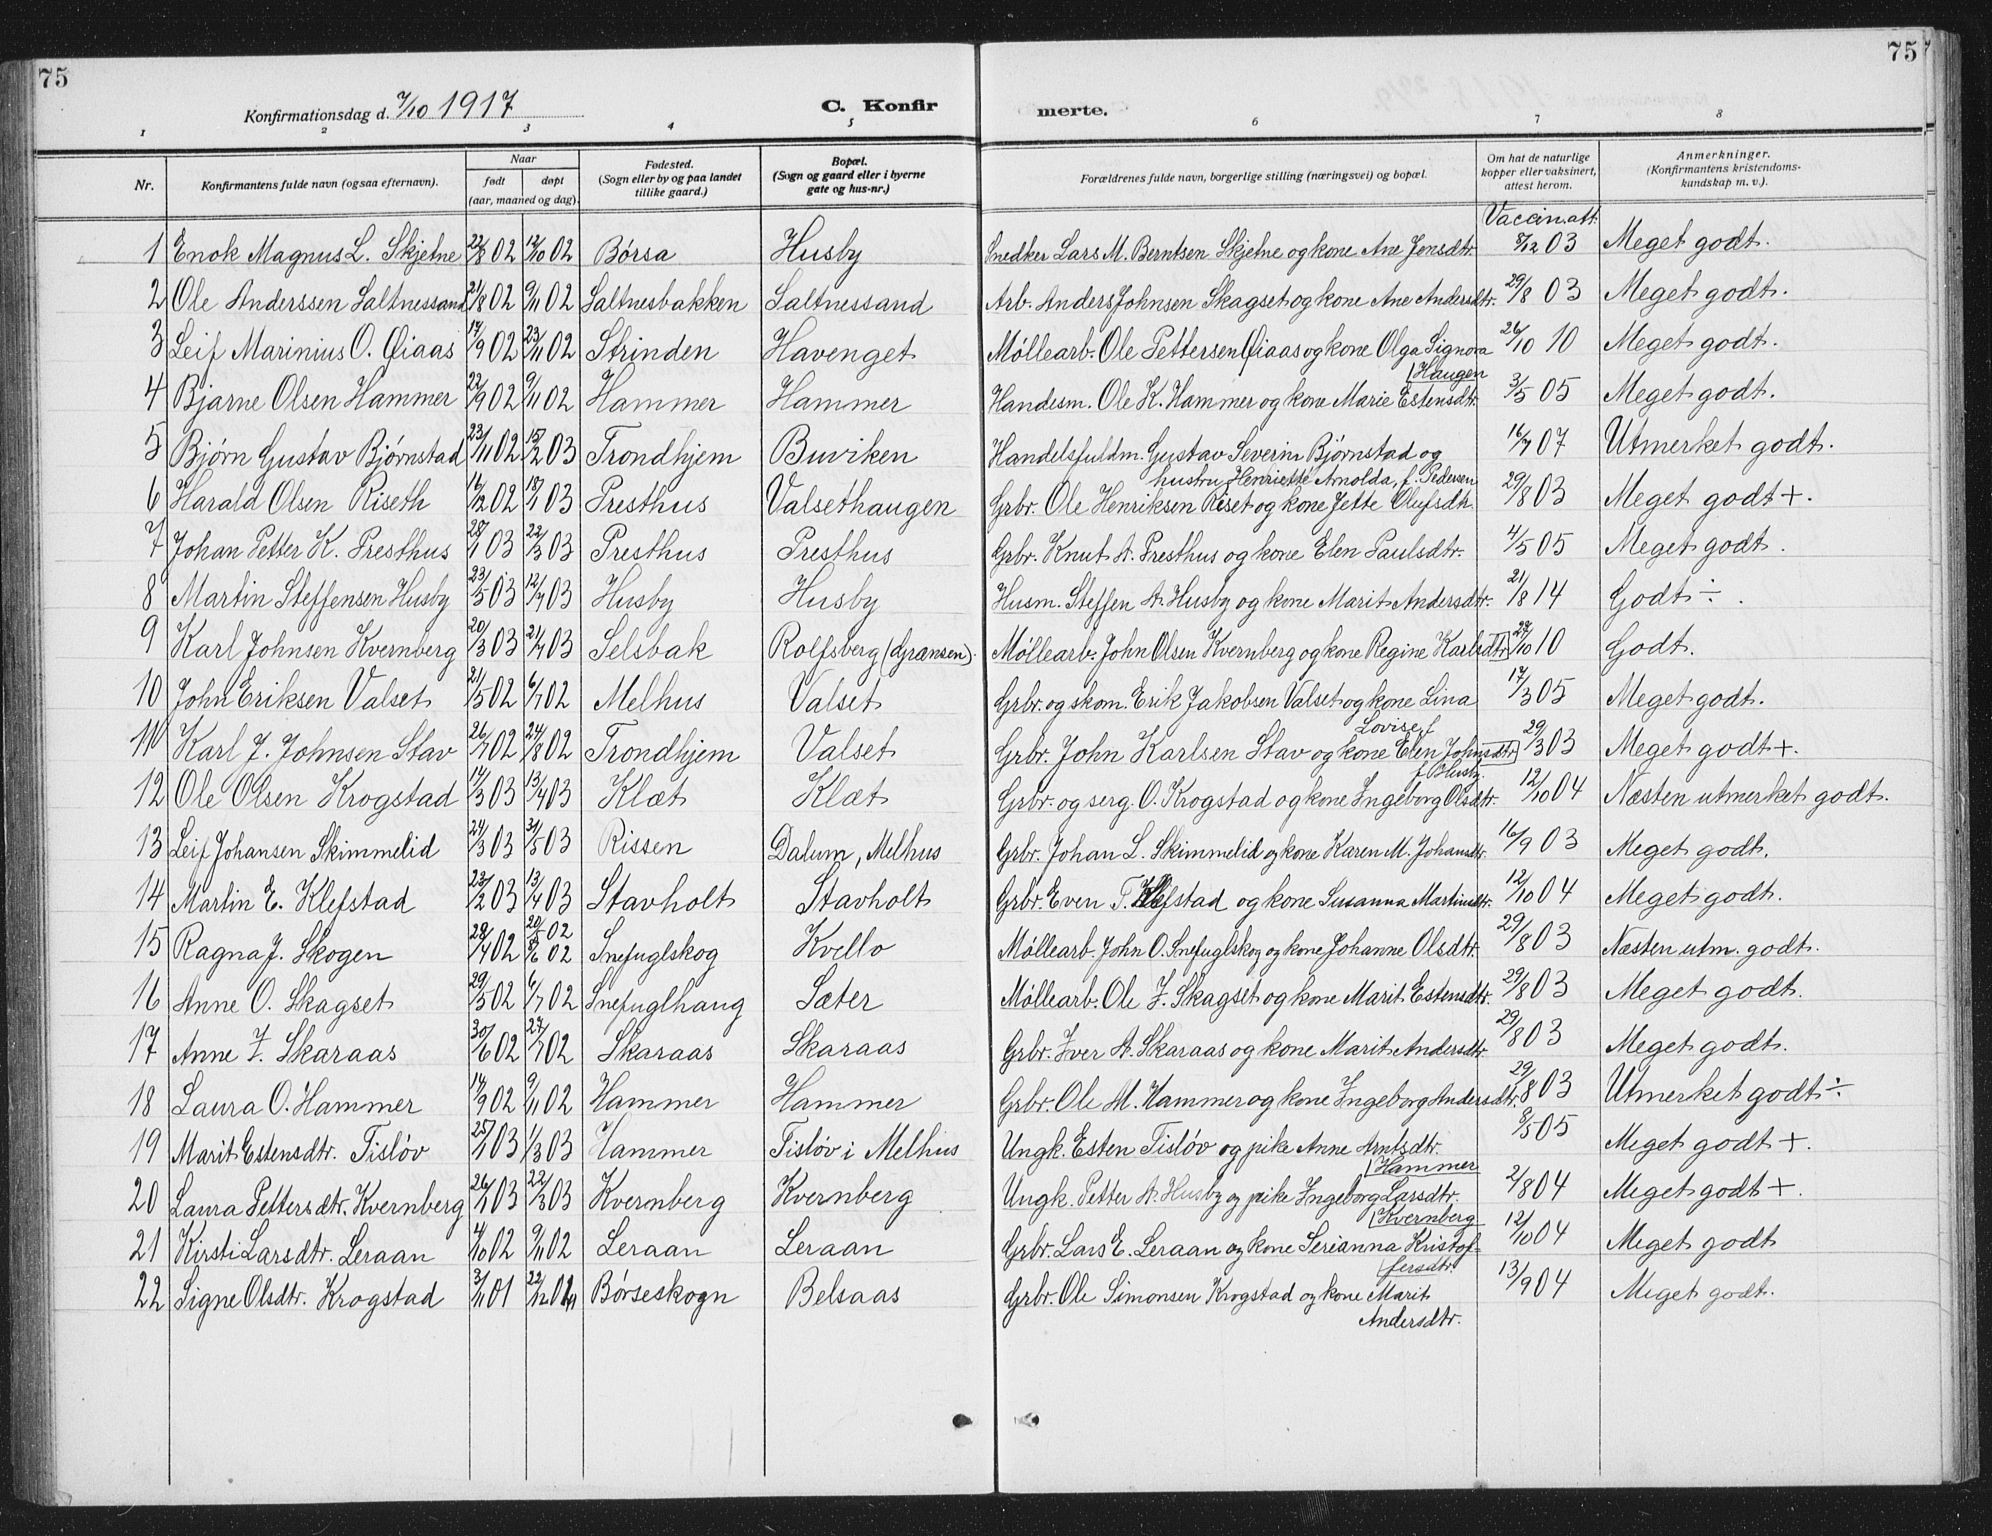 75
75
Konfirmationsdag d. 7/10 1917
C. Konfir
merte.
1 2 3 4 5 6 7 8
Nr. Konfirmantens fulde navn (ogsaa efternavn). Naar født døpt (aar, maaned og dag). Fødested. (Sogn eller by og paa landet tillike gaard.) Bopæl. (Sogn og gaard eller i byerne gate og hus-nr.) Forældrenes fulde navn, borgerlige stilling (næringsvei) og bopæl. Om hat de naturlige kopper eller vaksinert, attest herom. Anmerkninger. (Konfirmantens kristendoms- kundskap m. v.).
Vaccin.att.
1 Enok Magnus L. Skjetne 22/8 02 12/10 02 Børsa Husby Snedker Lars M. Berntsen Skjetne og kone Ane Jensdtr. 8/12 03 Meget godt.
2 Ole Anderssen Saltnessand 21/8 02 9/11 02 Saltnesbakken Saltnessand Arb. Anders Johnsen Skagset og kone Ane Andersdtr. 29/8 03 Meget godt.
3 Leif Marinius O. Øiaas 17/9 02 23/11 02 Strinden Havenget Møllearb. Ole Pettersen Øiaas og kone Olga Signora 26/10 10 Meget godt.
Haugen
4 Bjarne Olsen Hammer 22/9 02 9/11 02 Hammer Hammer Handesm. Ole K. Hammer og kone Marie Estensdtr. 3/5 05 Meget godt.
5 Bjørn Gustav Bjørnstad 23/11 02 15/2 03 Trondhjem Buviken Handelsfuldm. Gustav Severin Bjørnstad og 16/7 07 Utmerket godt.
hustru Henriette Arnolda, f. Pedersen
6 Harald Olsen Riseth 16/12 02 18/1 03 Presthus Valsethaugen Grbr. Ole Henriksen Riset og kone Jette Olufsdtr. 29/8 03 Meget godt +.
7 Johan Petter K. Presthus 28/1 03 22/3 03 Presthus Presthus Grbr. Knut A. Presthus og kone Elen Paulsdtr. 4/5 05 Meget godt.
8 Martin Steffensen Husby 23/5 03 12/7 03 Husby Husby Husm. Steffen A. Husby og kone Marit Andersdtr. 21/8 14 Godt ÷.
9 Karl Johnsen Kvernberg 20/3 03 21/7 03 Selsbak Rolfsberg (Grænsen). Møllearb. John Olsen Kvernberg og kone Regine Karlsdtr. 10 Godt.
10 John Eriksen Valset 21/5 02 6/7 02 Melhus Valset Grbr. og skom. Erik Jakobsen Valset og kone Lina 17/3 05 Meget godt.
Lovise f
11 Karl J. Johnsen Stav 26/7 02 24/8 02 Trondhjem Valset Grbr. John Karlsen Stav og kone Elen Johnsdtr. 29/3 03 Meget godt +.
f. Husby.
12 Ole Olsen Krogstad 17/3 03 13/4 03 Klæt Klæt Grbr. og serg. O. Krogstad og kone Ingeborg Olsdtr. 12/10 04 Næsten utmerket godt.
13 Leif Johansen Skimmelid 24/3 03 31/5 03 Rissen Dalum, Melhus Grbr. Johan L. Skimmelid og kone Karen M. Johansdtr. 16/9 03 Meget godt.
14 Martin E. Klefstad 23/2 03 13/4 03 Stavholt Stavholt Grbr. Even T. Klefstad og kone Susanna Martinsdtr. 12/10 04 Meget godt.
15 Ragna J. Skogen 28/4 02 02 Snefuglskog Kvello Møllearb. John O. Snefuglskog og kone Johanne Olsdtr. 29/8 03 Næsten utm. godt.
16 Anne O. Skagset 29/5 02 6/7 02 Snefuglhaug Sæter Møllearb. Ole J. Skagset og kone Marit Estensdtr. 29/8 03 Meget godt.
17 Anne I. Skaraas 30/6 02 27/7 02 Skaraas Skaraas Grbr. Iver A. Skaraas og kone Marit Andersdtr. 29/8 03 Meget godt.
18 Laura O. Hammer 14/9 02 9/11 02 Hammer Hammer Grbr. Ole M. Hammer og kone Ingeborg Andersdtr. 29/8 03 Utmerket godt ÷
19 Marit Estensdtr. Tisløv 25/1 03 1/3 03 Hammer Tisløv i Melhus Ungk. Esten Tisløv og pike Anne Arntsdtr. 8/5 05 Meget godt +.
Hammer
20 Laura Pettersdtr. Kvernberg 26/1 03 22/3 03 Kvernberg Kvernberg Ungk. Petter A. Husby og pike Ingeborg Larsdtr. 2/8 04 Meget godt +.
Kvernberg
21 Kirsti Larsdtr. Leraan 4/10 02 9/11 02 Leraan Leraan Grbr. Lars E. Leraan og kone Serianna Kristof- 12/10 04 Meget godt
fersdtr.
22 Signe Olsdtr. Krogstad 3/11 01 22/12 01 Børseskogn Belsaas Grbr. Ole Simonsen Krogstad og kone Marit 13/9 04 Meget godt.
Andersdtr.